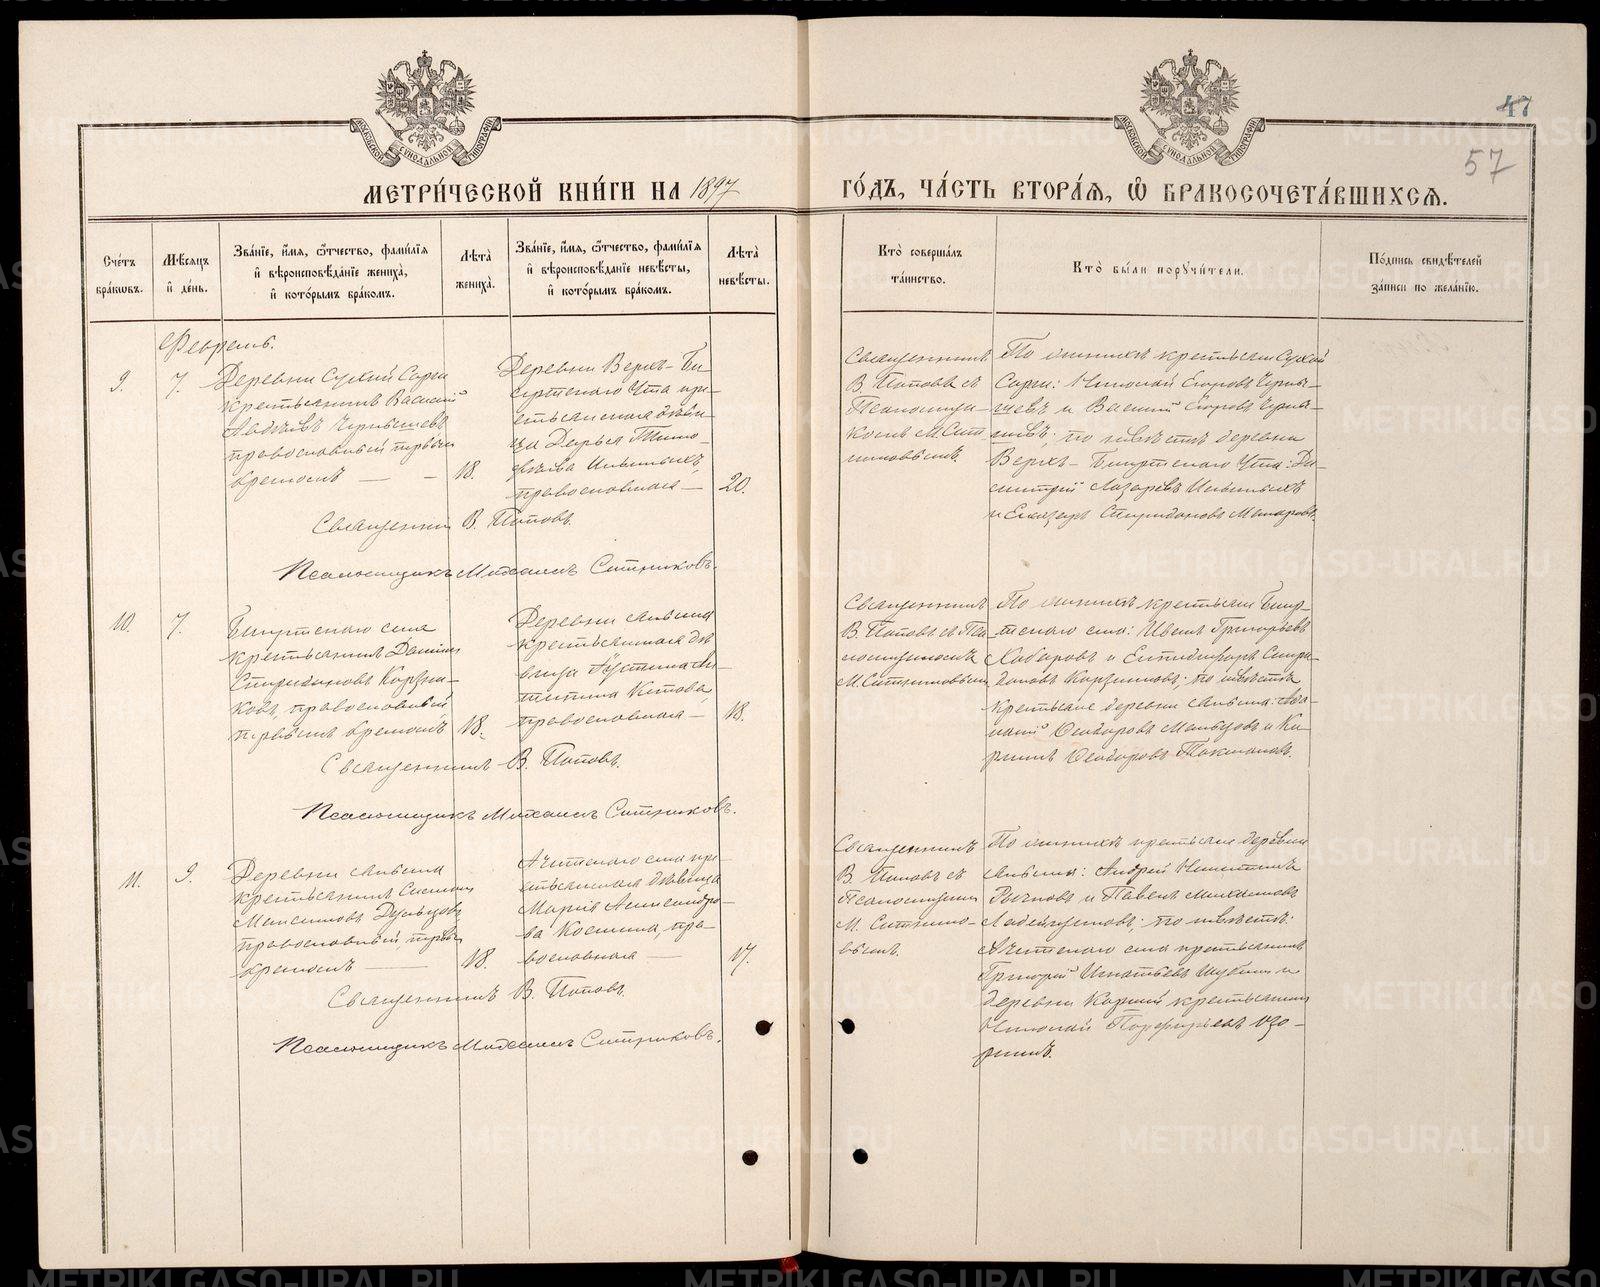 47
57
МЕТРИ́ЧЕСКОЙ КНИ́ГИ НА 1897 ГО́ДЪ, ЧА́СТЬ ВТОРА́Я, Ѡ БРАКОСОЧЕТА́ВШИХСЯ.
Сче́тъ бра́ковъ.
Мѣ́сяцъ и҆ де́нь.
Зва́нїе, и҆́мя, ѻ҆́тчество, фами́лїя и҆ вѣроисповѣ́данїе жениха̀, и҆ кото́рымъ бра́комъ.
Лѣ́та жениха̀.
Зва́нїе, и҆́мя, ѻ҆́тчество, фами́лїя и҆ вѣроисповѣ́данїе невѣ́сты, и҆ кото́рымъ бра́комъ.
Лѣ́та невѣ́сты.
Кто̀ соверша́лъ та́инство.
Кто̀ бы́ли поручи́тели.
По́дпись свидѣ́телей за́писи по жела́нїю.
Февраль.
9.
7.
Деревни Сухой Сарги
крестьянинъ Василий
Авдѣевъ Чернышевъ
православный первымъ
бракомъ
18.
Деревни Верхъ-Би
сертскаго Ута кре-
стьянская дѣви-
ца Дарья Тимо-
фѣева Ильиныхъ,
православная
20.
Священникъ
В. Поповъ съ
Псаломщи-
комъ М. Сит
никовымъ.
По женихѣ крестьяне Сухой
Сарги: Николай Егоровъ Черны-
шевъ и Василий Егоровъ Черны-
шевъ; по невѣстѣ деревни
Верхъ-Бисертскаго Ута: Ди-
митрий Лазаревъ Ильиныхъ
и Елизаръ Спиридоновъ Макаровъ.
Священникъ В. Поповъ.
Псаломщикъ Михаилъ Ситниковъ.
10.
7.
Бисертскаго села
крестьянинъ Даниилъ
Спиридоновъ Корзни-
ковъ, православный
первымъ бракомъ
18.
Деревни
крестьянская дѣ
вица Устина Ни-
китина Китова,
православная
18.
Священникъ
В. Поповъ съ Пса
ломщикомъ
М. Ситниковымъ
По женихѣ крестьяне Бисер-
тскаго села: Иванъ Григорьевъ
Хабаровъ и Епидифоръ Спири-
доновъ Корзниковъ; по невѣстѣ
крестьяне деревни
Ѳеодоровъ Мальцовъ и Ки-
риллъ Ѳеодоровъ Токмаковъ.
Священникъ В. Поповъ.
Псаломщикъ Михаилъ Ситниковъ.
11.
9.
Деревни
крестьянинъ
Максимовъ
православный, первымъ
бракомъ
18.
Ачитскаго села кре-
стьянская дѣвица
Марія Александро-
ва Косткина, пра-
вославная
17.
Священникъ
В. Поповъ съ
Псаломщикомъ
М. Ситнико-
вымъ.
По женихѣ крестьяне деревни
Андрей Никитинъ
Рычковъ и Павелъ Михаиловъ
Ладейщиковъ; по невѣстѣ:
Ачитскаго села крестьянинъ
Григорий Игнатьевъ Шубинъ и
деревни Корзни крестьянинъ
Николай Порфирьевъ Озо-
рнинъ.
Священникъ В. Поповъ.
Псаломщикъ Михаилъ Ситниковъ.